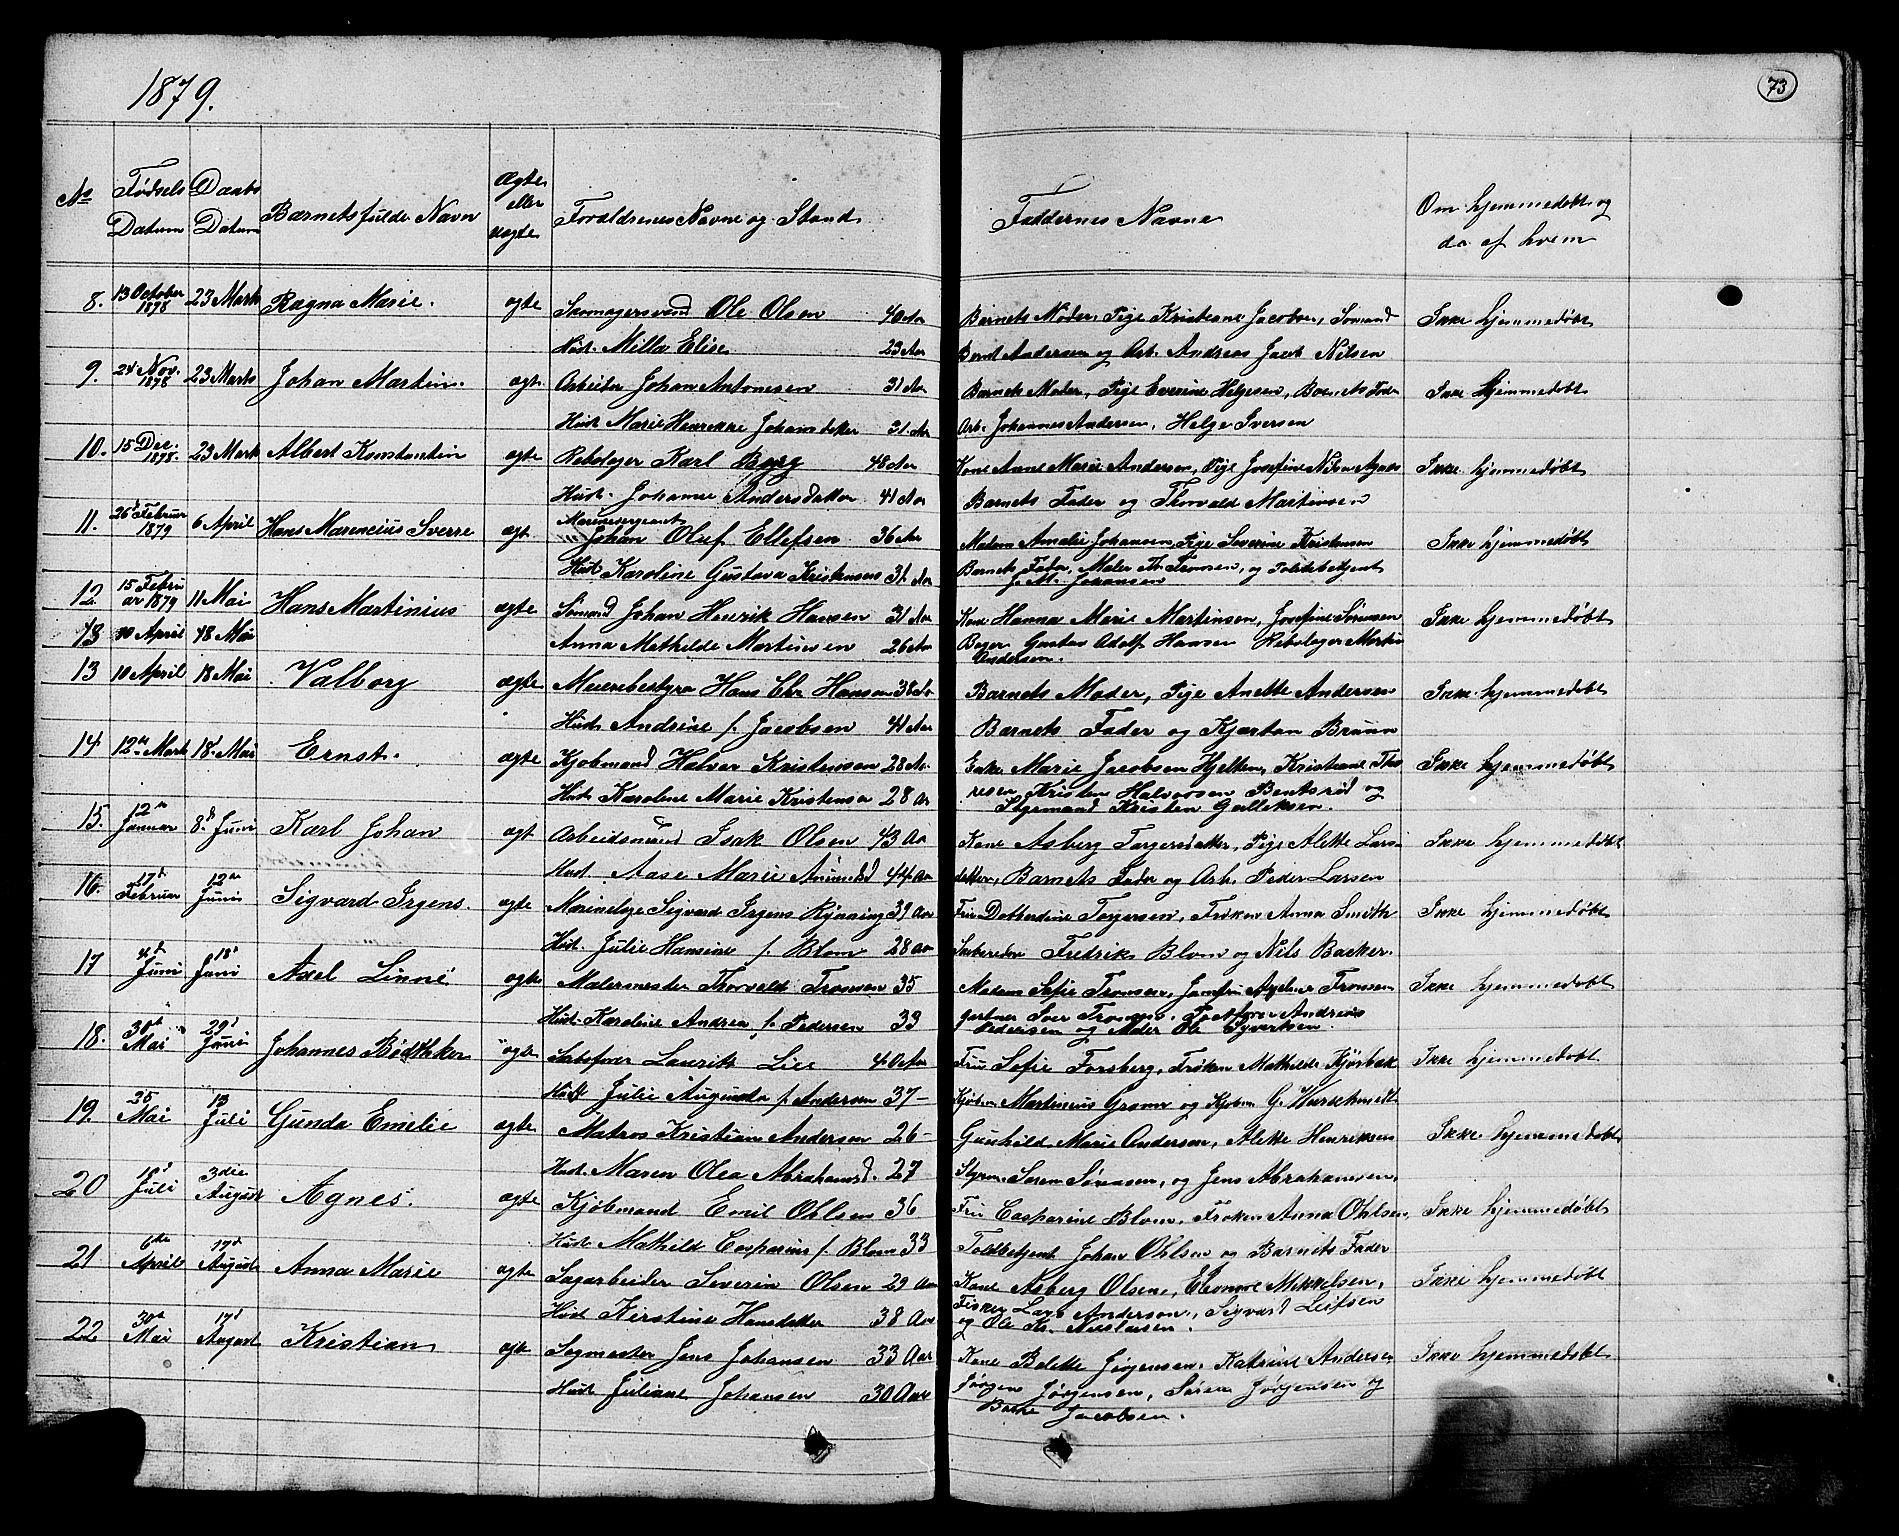 1879.
73
No
Fødsels Datum
Daabs Datum
Barnets fulde Navn
Ægte eller uægte
Forældrenes Navne og Stand
Faddernes Navne
Om hjemmedøbt og da af hvem
8. 13 October 1878 23 Marts Ragna Marie. ægte Ole Olsen 40 Aar
Barnets Moder, Pige Kristiane Jacobsen, Sømand
Ikke hjemmedøbt
Hust. Milla Elise 23 Aar
Bernt Andersen og Arb. Andreas Jacob Nilsen
9. 24 Nov. 1878 23 Marts Johan Martin. ægt. Arbeider Johan Antonesen 31 Aar
Barnets Moder, Pige Everine Helgesen, Barnets Fader
Ikke hjemmedøbt
Hust. Marie Henrekke 31. Aar
Arb. Johannes Andersen, Helge Iversen
10. 15 Dec. 1878. 23 Mart Albert Konstantin ægte Karl 48 Aar
Kone Anne Marie Andersen, Pige Josefine Nilsen
Ikke hjemmedøbt
Hust. Johanne Andersdatter 41 Aar
Barnets Fader og Thorvald Martinsen
11. 26 Februar 1879 6 April Hans Marencius Sverre ægt. Marinesergeant Johan Oluf Ellefsen 36 Aar
Madam Amalie Johansen, Pige Severine Kristensen
Ikke hjemmedøbt
Hust Karoline Gustava Kristensen 31 Aar
Barnets Fader, Maler Th. Tronsen, og Politibetjent
J. M. Johansen
12. 15 Februar 1879 11 Mai Hans Martinius ægte Sømand Johan Henrik Hansen 31 Aar
Kone Hanna Marie Martinsen, Josefine Sørensen
Ikke hjemmedøbt
13 10 April 18 Mai
Anna Mathilde Martinsen 26 Aar
Bager Gustav Adolf Hansen Martin
Andersen.
13 10 April 18 Mai Valborg ægte Hans Chr Hansen 38 Aar
Barnets Moder, Pige Anette Andersen
Ikke hjemmedøbt
Hust. Andrine f. Jacobsen 41 Aar
Barnets Fader og Kjartan Bruun
14 12te Marts 18d Mai Ernst. ægte Kjøbmand Halvor Kristensen 28 Aar
Enke Marie Jacobsen Hjelken, Kristiane Tho
Ikke hjemmedøbt
Hust Karoline Marie Kristensen 28 Aar
resen Kristen Halvorsen Bentsrød og
Styrmand Kristen Gulliksen.
15. 12te Januar 8de Juni Karl Johan ægt Arbeidsmand Isak Olsen 43 Aar
Kone Asberg Torgersdatter, Pige Alette Lars
Ikke hjemmedøbt
Hust. Aase Marie 44 Aar
datter, Barnets Fader og Arb. Peder Larsen
16. 17d Februar 12te Juni Sigvard Irgens. ægte Sigvard Irgens Rynning 39 Aar
Fru Torgersen, Frøken Anna Smith
Ikke hjemmedøbt
Hust. Julie Hansine f. Blom 28 Aar
Skibsreder Fredrik Blom og Nils Backer.
17 4d Juni 18d Juni Axel Linné ægte Malermester Thorvald Tronsen 35
Madam Sofie Tronsen, Jomfru Tronsen
Ikke hjemmedøbt
Hust. Karoline Andrea f. Pedersen 33
gartner Tronsen. Andreas
Pedersen og Maler Ole Syvertsen.
18. 30te Mai 29d Juni Johannes Bødtker ægte Skibsfører Laurits Lie 40 Aar
Fru Sofie Forsberg, Frøken Mathilde
Ikke hjemmedøbt
Hust Julie Augusta f. Andersen 37-
Kjøbm. Martinius Gram og Kjøbm. G.
19. 25 Mai 13 Juli Gunda Emelie ægte Matros Kristian Andersen 26-
Gunhild Marie Andersen, Henriksen
Ikke hjemmedøbt
Hust. Maren Olea Abrahamsd. 27
Styrm. Søren Sørensen, og Jens Abrahamsen,
20 Juli 3die August Agnes. ægte Kjøbmand Emil Ohlsen 36
Fru Casparine Blom, Frøken Anna Ohlsen,
Ikke hjemmedøbt
Hust. Mathild Casparine f. Blom 33
Toldbetjent Johan Ohlsen og Barnets Fader
21 6te April 17d August Anna Marie ægte Sagarbeider Severin Olsen 29 Aar
Kone Asberg Olsen, Mikkelsen,
Ikke hjemmedøbt
Hust Kirstine Hansdatter 38 Aar
Fisker Lars Andersen, Sigvart Leifsen
og Ole Kr.
22 30te Mai 17d August Kristian ægte Sagmester Jens Johansen 33 Aar
Kone Jørgensen, Katrine Andersen
Ikke hjemmedøbt
Hust Juliane Johansen 30 Aar
Jørgen Jørgensen, Søren Jørgensen og
Jacobsen.